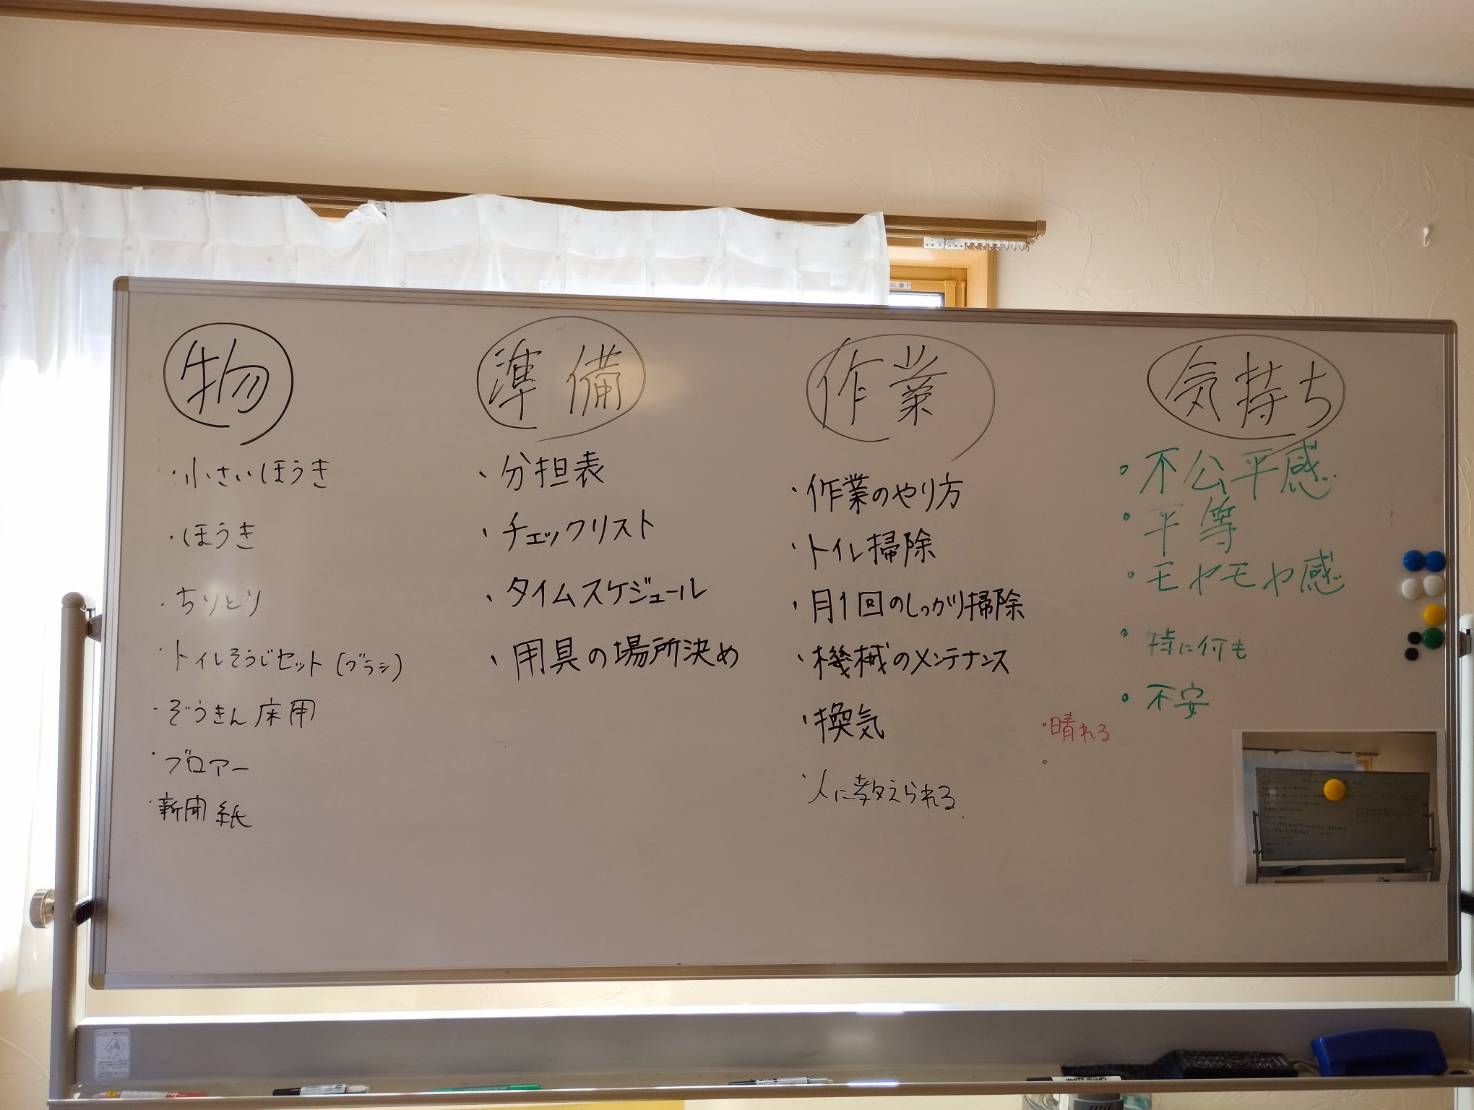 物
・小さいほうき
・ほうき
・ちりとり
・トイレそうじセット(ブラシ)
・ぞうきん 床用
・ブロアー
・新聞紙
準備
・分担表
・チェックリスト
・タイムスケジュール
・用具の場所決め
作業
・作業のやり方
・トイレ掃除
・月1回のしっかり掃除
・機械のメンテナンス
・換気
・人に教えられる
気持ち
・不公平感
・平等
・モヤモヤ感
・特に何も
・不安
・晴れる